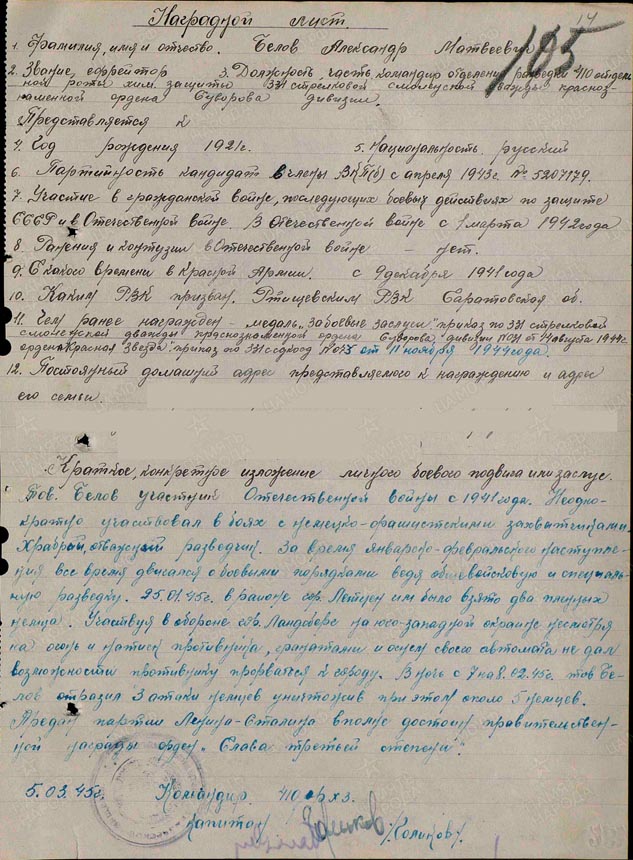 14
Наградной лист
105
1. Фамилия, имя и отчество. Белов Александр Матвеевич
2. Звание, ефрейтор 3. Должность, часть, командир отделения разведки 410 отдель
ной роты хим. защиты 331 стрелковой смоленской дважды красноз-
наменной ордена Суворова дивизии.
Представляется к
4. Год рождения 1921г. 5. Национальность. русский
6. Партийность кандидат в члены ВКП(б) с апреля 1943г. № 5207179.
7. Участие в гражданской войне, последующих боевых действиях по защите
СССР и в Отечественной войне. В Отечественной войне с 1 марта 1942 года
8. Ранения и контузии в Отечественной войне – нет.
9. С какого времени в Красной Армии. с 9 декабря 1941 года
10. Каким РВК призван. Ртищевским РВК Саратовская об.
11. Чем ранее награжден – медаль "За боевые заслуги" приказ по 331 стрелковой
смоленской дважды краснознаменной ордена Суворова дивизии от августа 1944г.
орден "Красная Звезда" приказ по 331 от 11 ноября 1944 года.
12. Постоянный домашний адрес представляемого к награждению и адрес
его семьи.
Краткое, конкретное изложение личного боевого подвига или заслуг.
Тов. Белов участник Отечественной войны с 1941 года. Неодно-
кратно участвовал в боях с немецко-фашистскими захватчиками.
Храбрый, отважный разведчик. За время январско-февральского наступле-
ния все время двигался с боевыми порядками ведя общевойсковую и специаль-
ную разведку. 25.01.45г. в районе им было взято два пленных
немца. Участвуя в обороне Ландсберг на юго-западной окраине несмотря
на огонь и натиск противника, гранатами и огнем своего автомата не дал
возможности противнику прорваться к городу. В ночь с 7 на 8.02.45г. тов Бе-
лов отразил 3 атаки немцев уничтожив при этом около 5 немцев.
Предан партии Ленина-Сталина вполне достоин правительствен-
ной награды орден "Слава третьей степени".
5.03.45г. Командир 410 рхз.
капитан /Коликов/